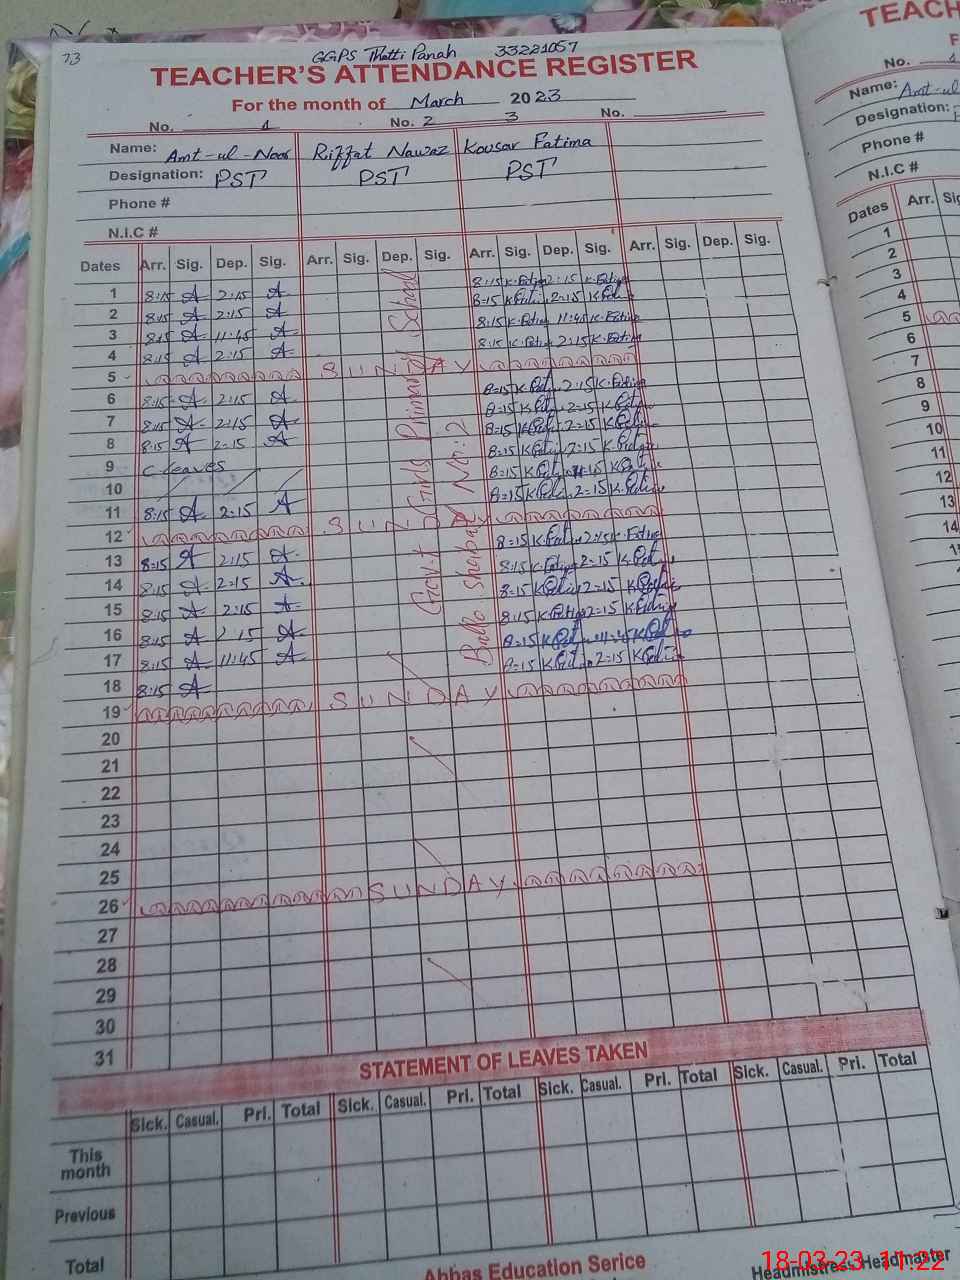 73 GGPS Thatti Panah 33221057
TEACHER'S ATTENDANCE REGISTER
For the month of March 2023
No. 1 No. 2 3 No.
Name: Amt-ul-Noor Riffat Nawaz Kousar Fatima
Designation: PST PST PST
Phone #
N.I.C #
Dates Arr. Sig. Dep. Sig. Arr. Sig. Dep. Sig. Arr. Sig. Dep. Sig. Arr. Sig. Dep. Sig.
1 8:15 A 2:15 A 8:15 K.Fatima 2:15 K.Fatima
2 8:15 A 2:15 A 8=15 K.Fatima 2=15 K.Fatima
3 8:15 A 11:45 A 8:15 K.Fatima 11:45 K.Fatima
4 8:15 A 2:15 A 8:15 K.Fatima 2:15 K.Fatima
5 SUNDAY
6 8:15 A 2:15 A 8=15 K.Fatima 2:15 K.Fatima
7 8:15 A 2:15 A 8=15 K.Fatima 2=15 K.Fatima
8 8:15 A 2:15 A 8=15 K.Fatima 2=15 K.Fatima
9 C leaves 8=15 K.Fatima 2=15 K.Fatima
10 8=15 K.Fatima K.Fatima
11 8:15 A 2:15 A 8=15 K.Fatima 2=15 K.Fatima
12 SUNDAY
13 8:15 A 2:15 A 8=15 K.Fatima 2:15 K.Fatima
14 8:15 A 2:15 A 8:15 K.Fatima 2=15 K.Fatima
15 8:15 A 2:15 A 8=15 K.Fatima 2=15 K.Fatima
16 8:15 A 2:15 A 8:15 K.Fatima 2=15 K.Fatima
17 8:15 A 11:45 A 8=15 K.Fatima 11=45 K.Fatima
18 8:15 A 8=15 K.Fatima 2=15 K.Fatima
19 SUNDAY
20
21
22
23
24
25
26 SUNDAY
27
28
29
30
31
Govt Girls Primary School
No:2
STATEMENT OF LEAVES TAKEN
Sick. Casual. Pri. Total Sick. Casual. Pri. Total Sick. Casual. Pri. Total Sick. Casual. Pri. Total
This month
Previous
Total
Abbas Education Serice
Headmistress Headmaster
18-03-23 11:22
TEACH
F
No.
Name: Amt-ul
Designation:
Phone #
N.I.C #
Dates Arr. Sig
1
2
3
4
5
6
7
8
9
10
11
12
13
14